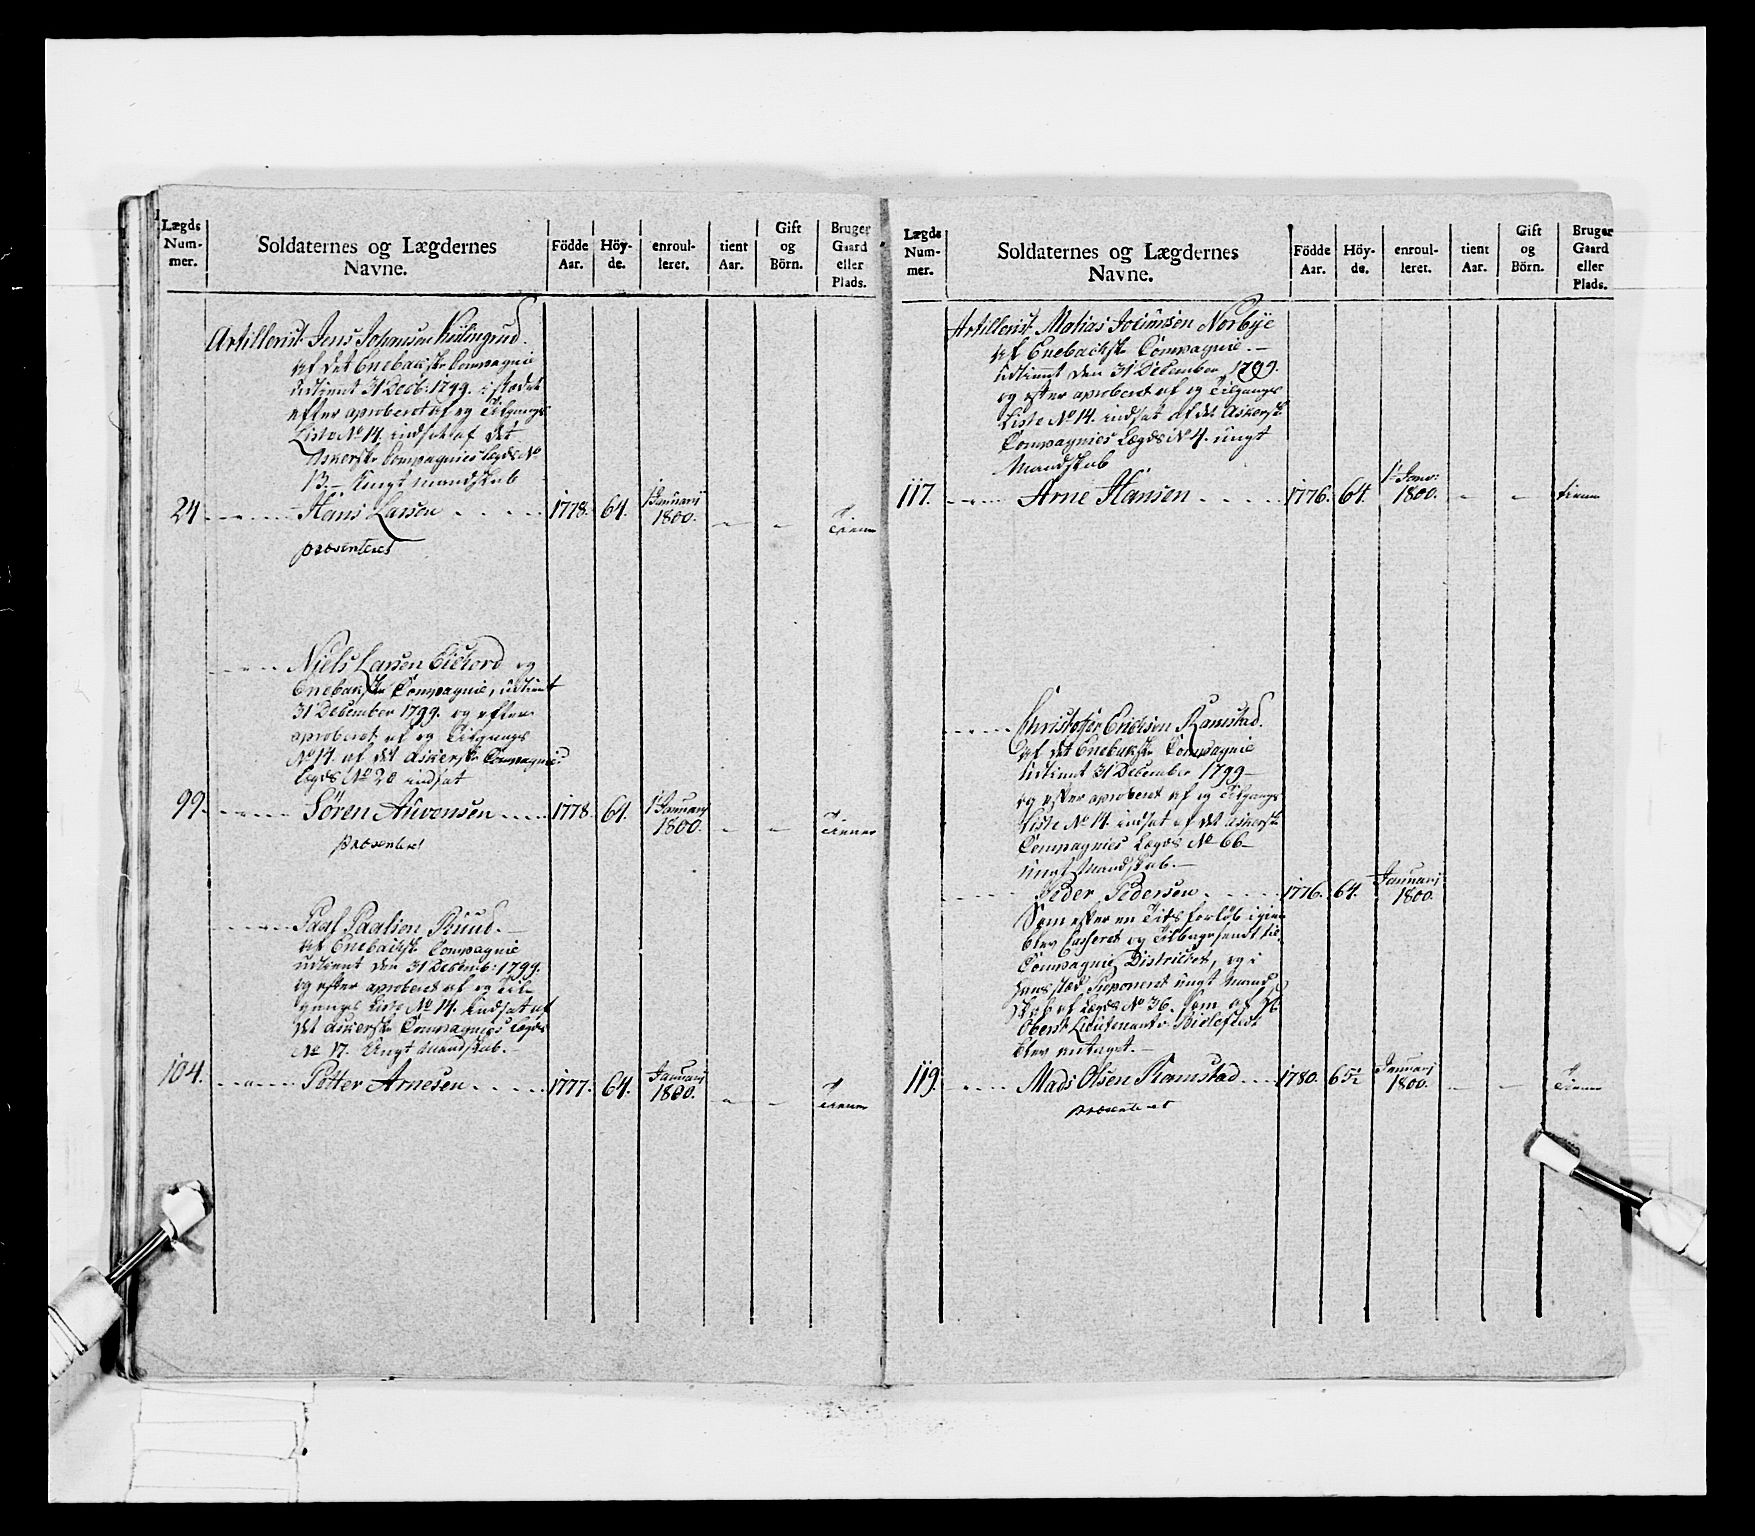 Lægds Num- mer.
Soldaternes og Lægdernes Navne.
Födde Aar.
Höy- de.
enroul- leret.
tient Aar.
Gift og Börn.
Bruger Gaard eller Plads.
Artillerist Jens Johansen
af det Enebachske Compagnie
udtient 31 Decb: 1799. i stædet
efter aproberet af og Tilgangs
Liste No 14. indsat af det
Askerske Compagnies Lægds No
13. – Ungt mandskab
24 Hans Larsen 1778. 64. 1 Januarij 1800. – – Tienner
præsenteret
Niels Larsen og
Enebakske Compagnie, udtient
31 December 1799. og efter
aproberet af og Tilgangs
No 14. af det Askerske Compagnies
Lægds No 20 indsat
99. Sören Auvensen 1778. 64. 1 Januarij 1800. – – Tienner
præsenteret
Paal Paalsen Ruud. –
af Enebachske Compagnie
udtient den 31 Decemb: 1799.
og efter aproberet af og Til-
gangs Liste No 14. Indsat af
det Askerske Compagnies Lægds
No 17. Ungt Mandskab. –
104. Petter Arnesen 1777. 64. Januarij 1800. – – Tienner
Lægds Num- mer.
Soldaternes og Lægdernes Navne.
Födde Aar.
Höy- de.
enroul- leret.
tient Aar.
Gift og Börn.
Bruger Gaard eller Plads.
Artillerist Matias Norbye
af Enebachske Compagnie. –
udtient den 31 December 1799.
og efter aproberet af og Tilgangs
Liste No 14. indsat af det Askerske
Compagnies Lægds No 4. ungt
Mandskab
117. Arne Hansen 1776. 64. 1 Janv: 1800. – – tienner
Christoffer Erichsen Ramstad.
af det Enebakske Compagnie
udtient 31 December 1799 –
og efter aproberet af og Tilgangs
Liste No 14. indsat af det Askerske
Compagnies Lægds No 66 –
ungt Mandskab. –
Peder Pedersen 1776. 64. Januarij 1800.
Som efter en Tids forløb igien
blev Casseret og Tilbagesendt til
Compagnie Districtet, og i
hans stæd ungt Mand
skab af Lægds No 36. Som af Hr.
Oberst Lieutenant v.
blev antaget. –
119. Mads Olsen Ramstad 1780. 65½ Januarij 1800. – – Tienner
præsenteret